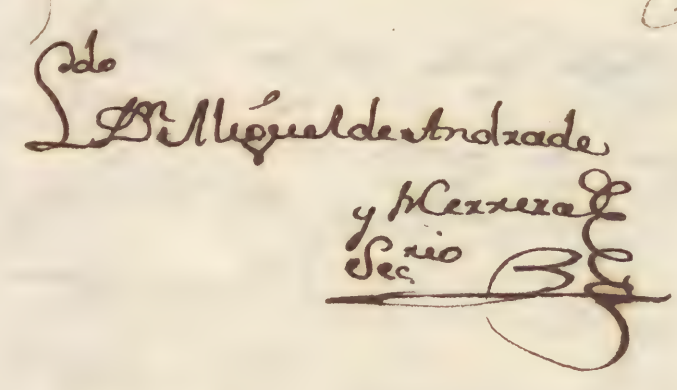 Ldo Dn Miguel de Andrade
y Herrera
Secrio